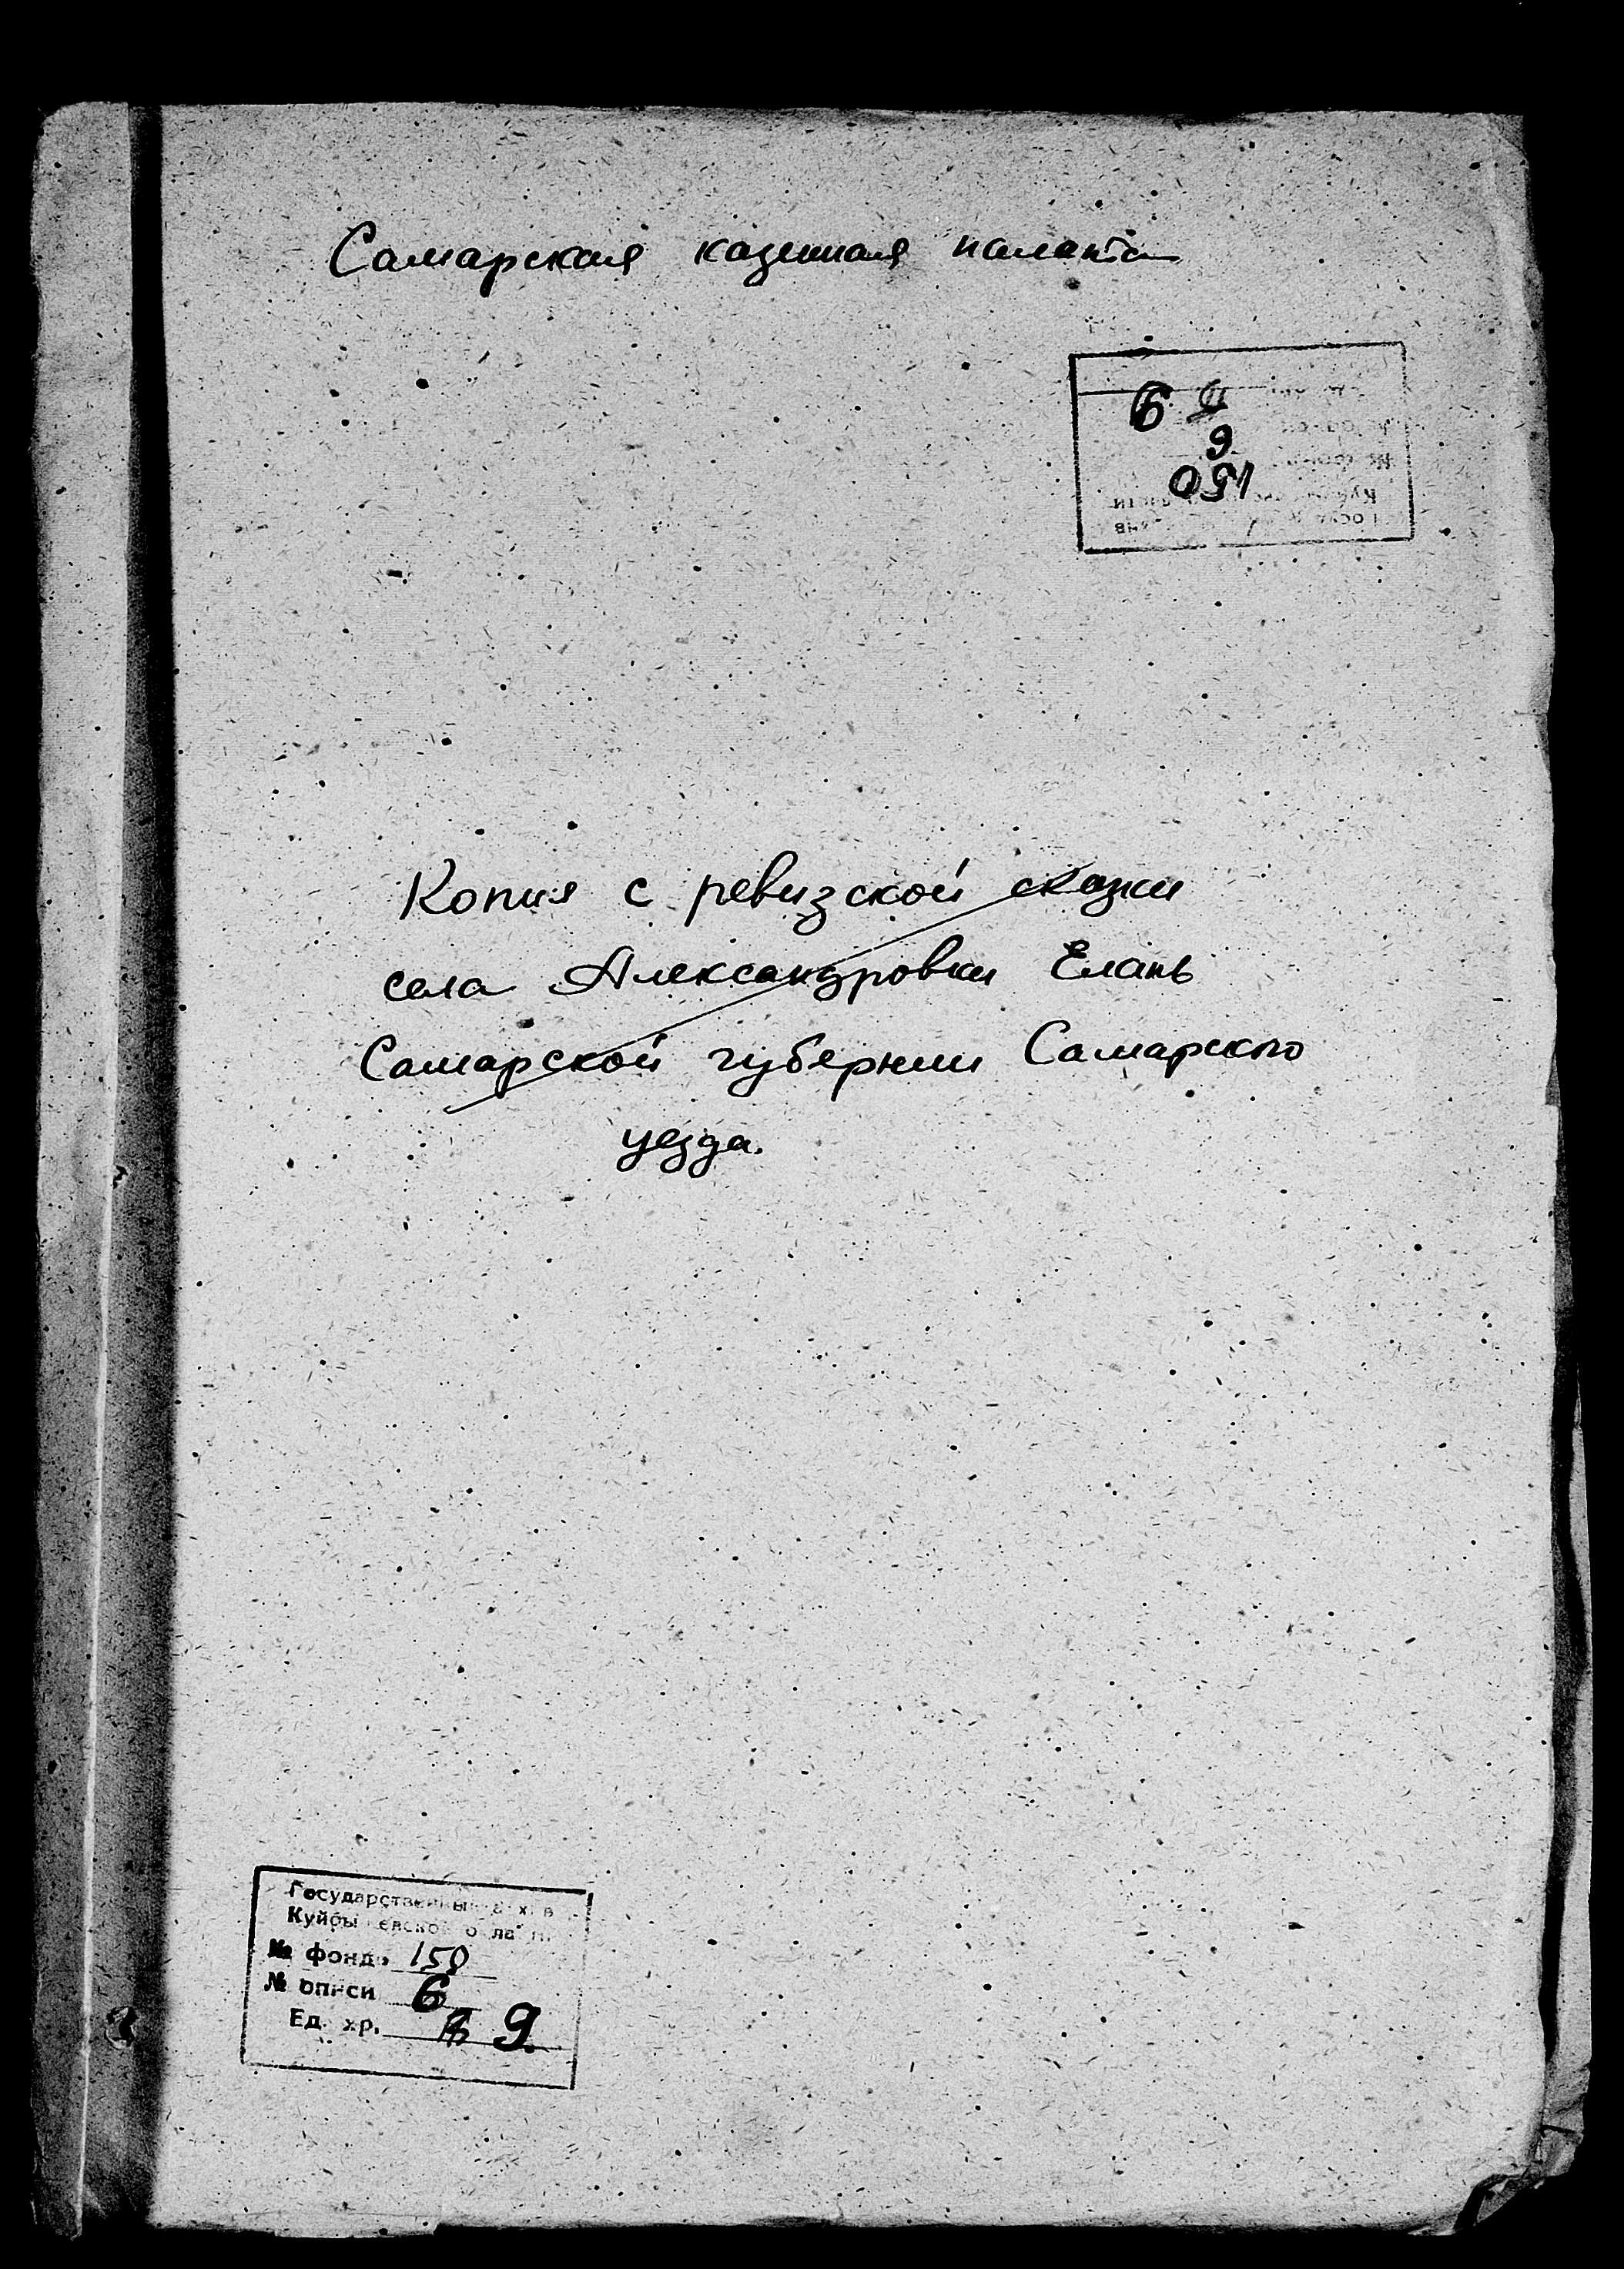 Самарская казенная палата
6
9
150
Копия с ревизской сказки
села Александровки Елань
Самарской губернии Самарского
уезда.
Государственный архив
Куйбышевской области
№ фонда 150
№ описи 6
Ед. хр. 9.